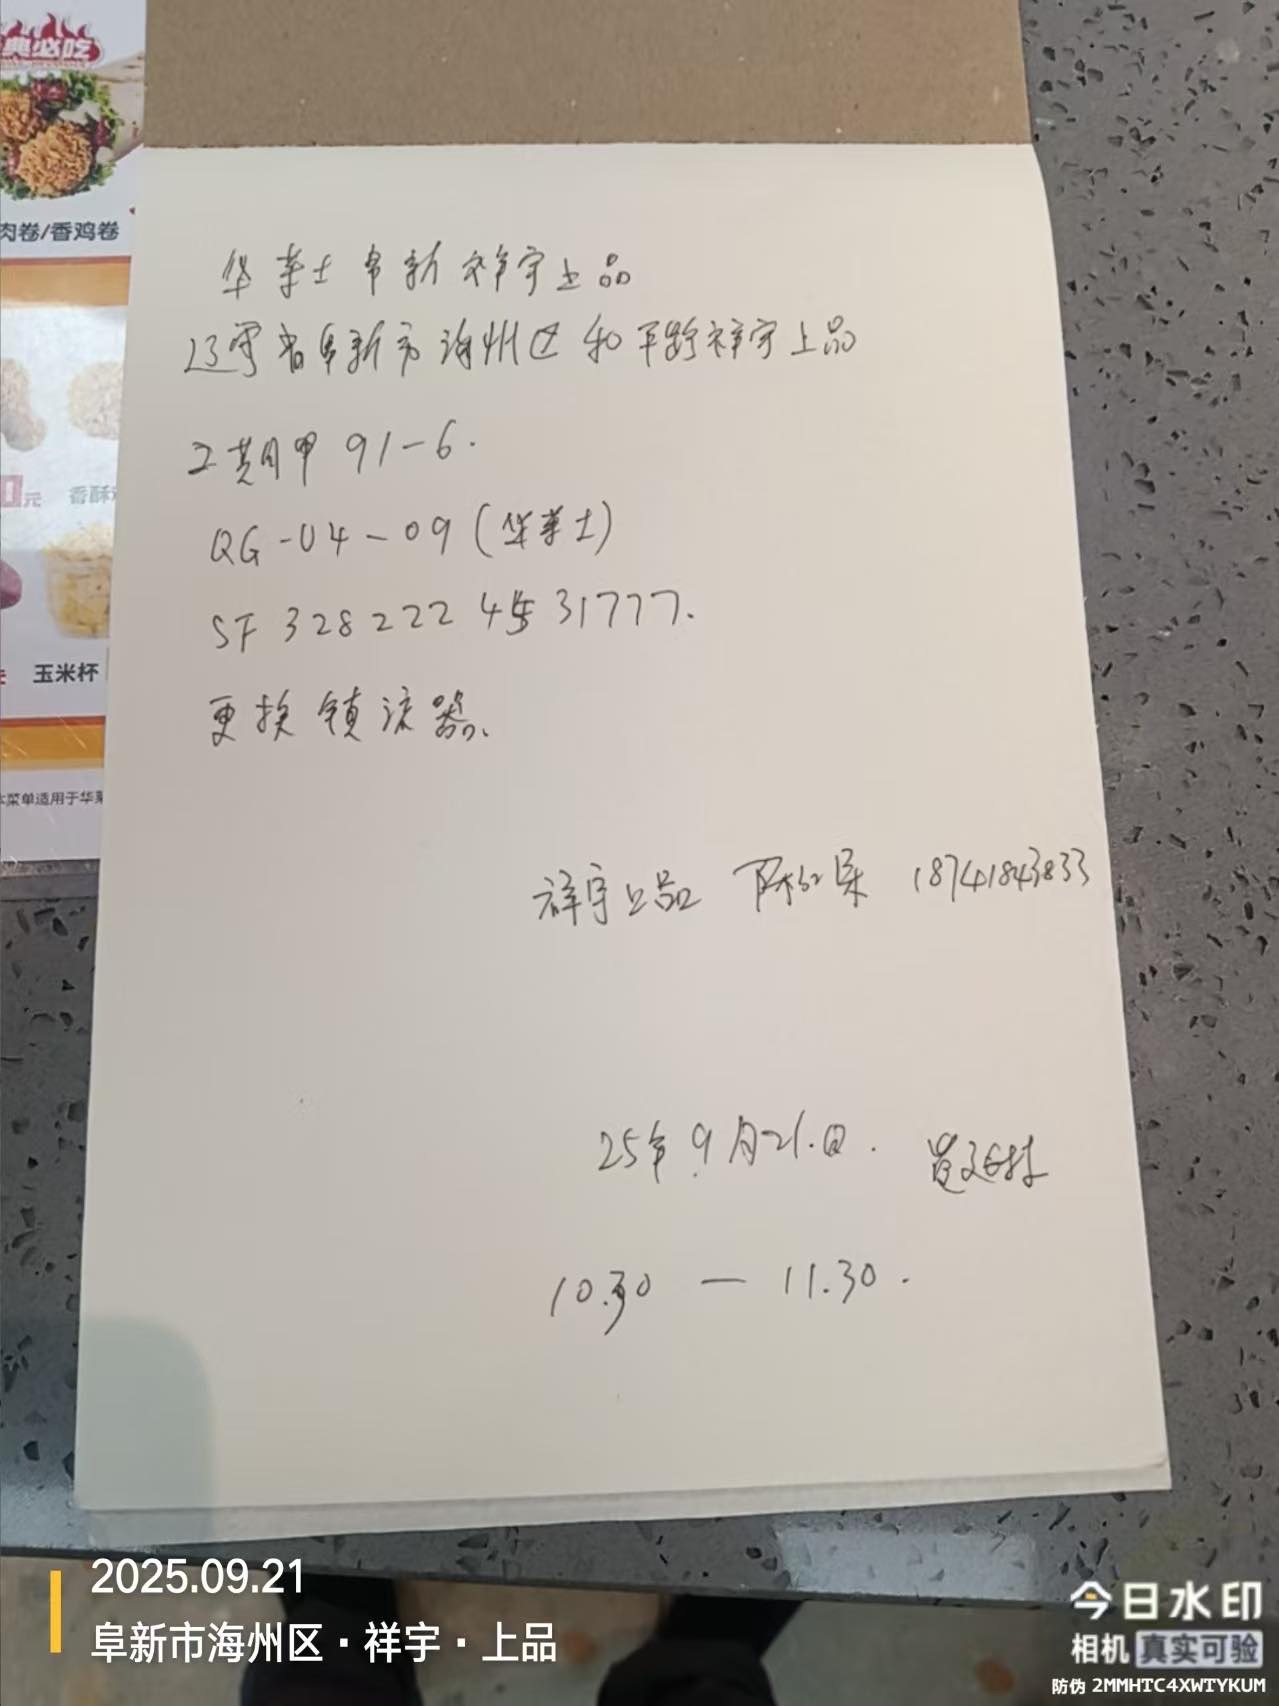 典必吃
肉卷/香鸡卷
元 香酥
玉米杯
本菜单适用于华莱
华莱士阜新祥宇上品
辽宁省阜新市海州区和平路祥宇上品
二期甲91-6.
QG-04-09(华莱士)
SF 328222 45 31777.
更换镇流器.
祥宇上品 陈 18741843833
25年9月21.日.
10.30 — 11.30.
2025.09.21
阜新市海州区·祥宇·上品
今日水印
相机 真实可验
防伪 2MMHTC4XWTYKUM